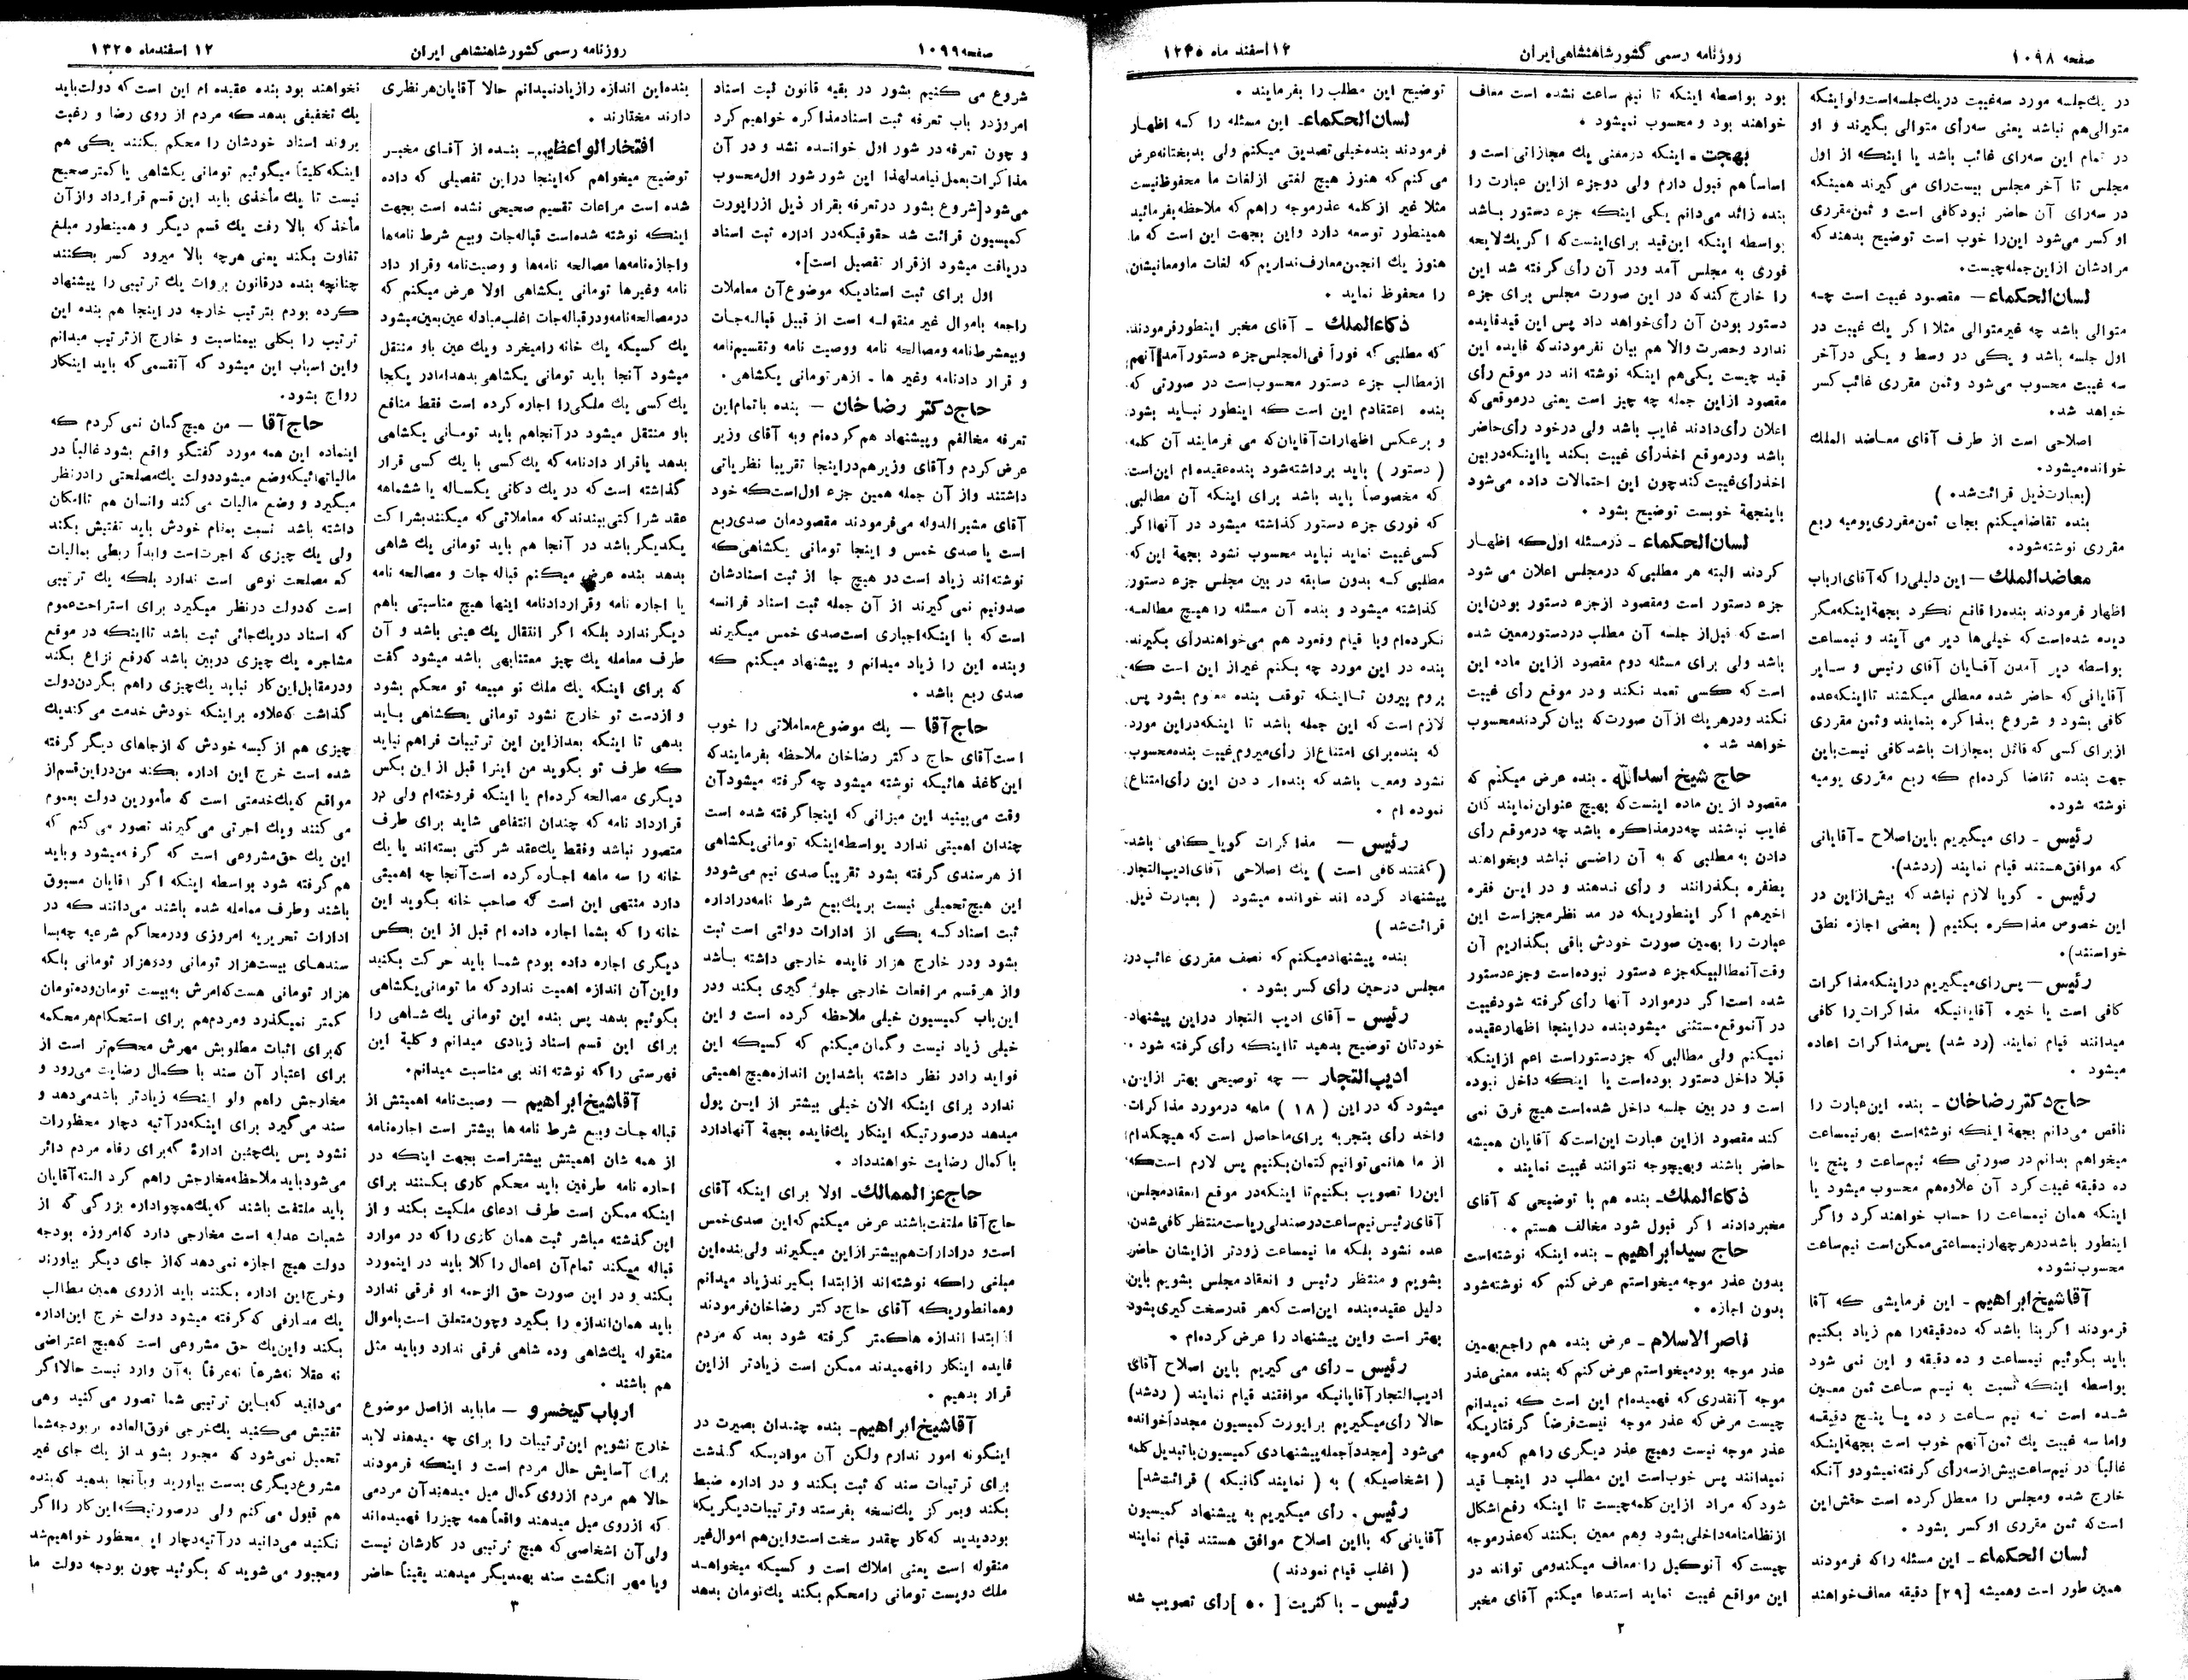 صفحه ۱۰۹۸
روزنامه رسمی کشور شاهنشاهی ایران
۱۲ اسفند ماه ۱۳۲۵
در یك جلسه مورد سه غیبت در یك جلسه است و لو اینکه
متوالی هم نباشد یعنی سه رأی متوالی بگیرند و او
در تمام این سه رای غائب باشد یا اینکه از اول
مجلس تا آخر مجلس بیست رای می گیرند همینکه
در سه رای آن حاضر نبود کافی است و ثمن مقرری
او کسر می شود این را خوب است توضیح بدهند که
مرادشان از این جمله چیست.
لسان الحکماء — مقصود غیبت است چه
متوالی باشد چه غیر متوالی مثلا اگر یك غیبت در
اول جلسه باشد و یکی در وسط و یکی در آخر
سه غیبت محسوب می شود و ثمن مقرری غائب کسر
خواهد شد.
اصلاحی است از طرف آقای معاضد الملك
خوانده میشود.
(بعبارت ذیل قرائت شد.)
بنده تقاضا میکنم بجای ثمن مقرری یومیه ربع
مقرری نوشته شود.
معاضد الملك — این دلیلی را که آقای ارباب
اظهار فرمودند بنده را قانع نکرد بجهة اینکه مگر
دیده شده است که خیلی ها دیر می آیند و نیمساعت
بواسطه دیر آمدن آقایان آقای رئیس و سایر
آقایانی که حاضر شده معطلی میکشند تا اینکه عده
کافی بشود و شروع بمذاکره بنمایند و ثمن مقرری
از برای کسی که قائل بمجازات باشد کافی نیست باین
جهت بنده تقاضا کرده ام که ربع مقرری یومیه
نوشته شود.
رئیس - رای میگیریم باین اصلاح - آقایانی
که موافق هستند قیام نمایند (رد شد).
رئیس - گویا لازم نباشد که بیش از این در
این خصوص مذاکره بکنیم ( بعضی اجازه نطق
خواستند).
رئیس — پس رای میگیریم در اینکه مذاکرات
کافی است یا خیر. آقایانیکه مذاکرات را کافی
میدانند قیام نمایند (رد شد) پس مذاکرات اعاده
میشود .
حاج دکتر رضا خان - بنده این عبارت را
ناقص می دانم بجهة اینکه نوشته است بهر نیمساعت
میخواهم بدانم در صورتی که نیم ساعت و پنج یا
ده دقیقه غیبت کرد آن علاوه هم محسوب میشود یا
اینکه همان نیمساعت را حساب خواهند کرد و اگر
اینطور باشد در هر چهار نیمساعتی ممکن است نیم ساعت
محسوب نشود.
آقا شیخ ابراهیم - این فرمایشی که آقا
فرمودند اگر بنا باشد که ده دقیقه را هم زیاد بکنیم
باید بگوئیم نیمساعت و ده دقیقه و این نمی شود
بواسطه اینکه نسبت به نیم ساعت ثمن معین
شده است نه نیم ساعت و ده یا پنج دقیقه
و اما سه غیبت یك ثمن آنهم خوب است بجهة اینکه
غالباً در نیم ساعت بیش از سه رأی گرفته نمیشود و آنکه
خارج شده و مجلس را معطل کرده است حقش این
است که ثمن مقرری او کسر بشود .
لسان الحکماء - این مسئله را که فرمودند
همین طور است و همیشه [۲۹] دقیقه معاف خواهند
بود بواسطه اینکه تا نیم ساعت نشده است معاف
خواهند بود و محسوب نمیشود .
بهجت - اینکه در معنی یك مجازاتی است و
اساساً هم قبول دارم ولی دو جزء از این عبارت را
بنده زائد می دانم یکی اینکه جزء دستور باشد
بواسطه اینکه این قید برای اینست که اگر یك لایحه
فوری به مجلس آمد و در آن رأی گرفته شد این
را خارج کند که در این صورت مجلس برای جزء
دستور بودن آن رأی خواهد داد پس این قید فایده
ندارد و حضرت والا هم بیان نفرمودند که فایده این
قید چیست یکی هم اینکه نوشته اند در موقع رأی
مقصود از این جمله چه چیز است یعنی در موقعی که
اعلان رأی دادند غایب باشد ولی در خود رأی حاضر
باشد و در موقع اخذ رأی غیبت بکند یا اینکه در بین
اخذ رأی غیبت کند چون این احتمالات داده می شود
باینجهة خوبست توضیح بشود .
لسان الحکماء - در مسئله اول که اظهار
کردند البته هر مطلبی که در مجلس اعلان می شود
جزء دستور است و مقصود از جزء دستور بودن این
است که قبل از جلسه آن مطلب در دستور معین شده
باشد ولی برای مسئله دوم مقصود از این ماده این
است که کسی تعمد نکند و در موقع رأی غیبت
نکند و در هر یك از آن صورت که بیان کردند محسوب
خواهد شد .
حاج شیخ اسدالله - بنده عرض میکنم که
مقصود از این ماده اینست که بهیچ عنوان نمایندگان
غایب نباشند چه در مذاکره باشد چه در موقع رأی
دادن به مطلبی که به آن راضی نباشد و بخواهند
بطفره بگذرانند و رأی ندهند و در این فقره
اخیر هم اگر اینطوریکه در مد نظر مجلس است این
عبارت را بهمین صورت خودش باقی بگذاریم آن
وقت آنمطالبیکه جزء دستور نبوده است و جزء دستور
شده است اگر در موارد آنها رأی گرفته شود غیبت
در آنموقع مستثنی میشود بنده در اینجا اظهار عقیده
نمیکنم ولی مطالبی که جزء دستور است اعم از اینکه
قبلا داخل دستور بوده است یا اینکه داخل نبوده
است و در بین جلسه داخل شده است هیچ فرق نمی
کند مقصود از این عبارت این است که آقایان همیشه
حاضر باشند و بهیچوجه نتوانند غیبت نمایند .
ذکاء الملك - بنده هم با توضیحی که آقای
مخبر دادند اگر قبول شود مخالف هستم .
حاج سید ابراهیم - بنده اینکه نوشته است
بدون عذر موجه میخواستم عرض کنم که نوشته شود
بدون اجازه .
ناصر الاسلام - عرض بنده هم راجع بهمین
عذر موجه بود میخواستم عرض کنم که بنده معنی عذر
موجه آنقدری که فهمیده ام این است که نمیدانم
چیست مرض که عذر موجه نیست فرضاً گرفتاریکه
عذر موجه نیست و هیچ عذر دیگری را هم که موجه
نمیدانند پس خوب است این مطلب در اینجا قید
شود که مراد از این کلمه چیست تا اینکه رفع اشکال
از نظامنامه داخلی بشود و هم معین بکنند که عذر موجه
چیست که آنوکیل را معاف میکند و می تواند در
این مواقع غیبت نماید استدعا میکنم آقای مخبر
توضیح این مطلب را بفرمایند .
لسان الحکماء - این مسئله را که اظهار
فرمودند بنده خیلی تصدیق میکنم ولی بدبختانه عرض
می کنم که هنوز هیچ لغتی از لغات ما محفوظ نیست
مثلا غیر از کلمه عذر موجه را هم که ملاحظه بفرمائید
همینطور توسعه دارد و این بجهت این است که ما
هنوز یك انجمن معارف نداریم که لغات ما و معانیشان
را محفوظ نماید .
ذکاء الملك - آقای مخبر اینطور فرمودند
که مطلبی که فوراً فی المجلس جزء دستور آمد آنهم
از مطالب جزء دستور محسوب است در صورتی که
بنده اعتقادم این است که اینطور نباید بشود
و بر عکس اظهارات آقایان که می فرمایند آن کلمه
( دستور ) باید برداشته شود بنده عقیده ام این است
که مخصوصاً باید باشد برای اینکه آن مطالبی
که فوری جزء دستور گذاشته میشود در آنها اگر
کسی غیبت نماید نباید محسوب نشود بجهة این که
مطلبی که بدون سابقه در بین مجلس جزء دستور
گذاشته میشود و بنده آن مسئله را هیچ مطالعه
نکرده ام و با قیام و قعود هم می خواهند رأی بگیرند
بنده در این مورد چه بکنم غیر از این است که
بروم بیرون تا اینکه توقف بنده معلوم بشود پس
لازم است که این جمله باشد تا اینکه در این مورد
که بنده برای امتناع از رأی میروم غیبت بنده محسوب
نشود و معلوم باشد که بنده از دادن این رأی امتناع
نموده ام .
رئیس — مذاکرات گویا کافی باشد
( گفتند کافی است ) یك اصلاحی آقای ادیب التجار
پیشنهاد کرده اند خوانده میشود ( بعبارت ذیل
قرائت شد )
بنده پیشنهاد میکنم که نصف مقرری غائب در
مجلس در حین رأی کسر بشود .
رئیس - آقای ادیب التجار در این پیشنهاد
خودتان توضیح بدهید تا اینکه رأی گرفته شود .
ادیب التجار — چه توضیحی بهتر از این
میشود که در این ( ۱۸ ) ماهه در مورد مذاکرات
و اخذ رأی بتجربه برای ما حاصل است که هیچکدام
از ما ها نمی توانیم کتمان بکنیم پس لازم است که
این را تصویب بکنیم تا اینکه در موقع انعقاد مجلس
آقای رئیس نیم ساعت در صندلی ریاست منتظر کافی شدن
عده نشود بلکه ما نیمساعت زودتر از ایشان حاضر
بشویم و منتظر رئیس و انعقاد مجلس بشویم باین
دلیل عقیده بنده این است که هر قدر سخت گیری بشود
بهتر است و این پیشنهاد را عرض کرده ام .
رئیس - رأی می گیریم باین اصلاح آقای
ادیب التجار آقایانیکه موافقند قیام نمایند ( رد شد)
حالا رأی میگیریم براپورت کمیسیون مجدداً خوانده
می شود [مجدداً جمله پیشنهادی کمیسیون با تبدیل کلمه
( اشخاصیکه ) به ( نمایندگانیکه ) قرائت شد]
رئیس . رأی میگیریم به پیشنهاد کمیسیون
آقایانی که با این اصلاح موافق هستند قیام نمایند
( اغلب قیام نمودند )
رئیس - با کثریت [ ۵۰ ] رأی تصویب شد
۲
صفحه ۱۰۹۹
روزنامه رسمی کشور شاهنشاهی ایران
۱۲ اسفند ماه ۱۳۲۵
شروع می کنیم بشور در بقیه قانون ثبت اسناد
امروز در باب تعرفه ثبت اسناد مذاکره خواهیم کرد
و چون تعرفه در شور اول خوانده نشد و در آن
مذاکرات بعمل نیامد لهذا این شور شور اول محسوب
می شود [شروع بشور در تعرفه بقرار ذیل از راپورت
کمیسیون قرائت شد حقوقیکه در اداره ثبت اسناد
دریافت میشود از قرار تفصیل است].
اول برای ثبت اسنادیکه موضوع آن معاملات
راجعه باموال غیر منقوله است از قبیل قباله جات
و بیع شرط نامه و مصالحه نامه و وصیت نامه و تقسیم نامه
و قرار داد نامه و غیر ها - از هر تومانی یکشاهی.
حاج دکتر رضا خان — بنده با تمام این
تعرفه مخالفم و پیشنهاد هم کرده ام و به آقای وزیر
عرض کردم و آقای وزیر هم در اینجا تقریبا نظریاتی
داشتند و از آن جمله همین جزء اول است که خود
آقای مشیر الدوله می فرمودند مقصودمان صدی ربع
است یا صدی خمس و اینجا تومانی یکشاهی که
نوشته اند زیاد است در هیچ جا از ثبت اسنادشان
صد و نیم نمی گیرند از آن جمله ثبت اسناد فرانسه
است که با اینکه اجباری است صدی خمس میگیرند
و بنده این را زیاد میدانم و پیشنهاد میکنم که
صدی ربع باشد .
حاج آقا — یك موضوع معاملاتی را خوب
است آقای حاج دکتر رضا خان ملاحظه بفرمایند که
این کاغذ هائیکه نوشته میشود چه گرفته میشود آن
وقت می بینید این میزانی که اینجا گرفته شده است
چندان اهمیتی ندارد بواسطه اینکه تومانی یکشاهی
از هر سندی گرفته بشود تقریباً صدی نیم می شود و
این هیچ تحمیلی نیست بر یك بیع شرط نامه در اداره
ثبت اسناد که یکی از ادارات دولتی است ثبت
بشود و در خارج هزار فایده خارجی داشته باشد
و از هر قسم مرافعات خارجی جلوگیری بکند و در
این باب کمیسیون خیلی ملاحظه کرده است و این
خیلی زیاد نیست و گمان میکنم که کسیکه این
فواید را در نظر داشته باشد این اندازه هیچ اهمیتی
ندارد برای اینکه الان خیلی بیشتر از این پول
میدهد در صورتیکه اینکار یك فایده بجهة آنها دارد
با کمال رضایت خواهند داد .
حاج عز الممالك - اولا برای اینکه آقای
حاج آقا ملتفت باشند عرض میکنم که این صدی خمس
است و در ادارات هم بیشتر از این میگیرند ولی بنده این
مبلغی را که نوشته اند از ابتدا بگیرند زیاد میدانم
و همانطوریکه آقای حاج دکتر رضا خان فرمودند
از ابتدا اندازه ها کمتر گرفته شود بعد که مردم
فایده اینکار را فهمیدند ممکن است زیادتر از این
قرار بدهیم .
آقا شیخ ابراهیم - بنده چندان بصیرت در
اینگونه امور ندارم ولکن آن موادیکه گذشت
برای ترتیبات سند که ثبت بکند و در اداره ضبط
بکند و بمرکز یك نسخه بفرستد و ترتیبات دیگریکه
بود دیدید که کار چقدر سخت است و این هم اموال غیر
منقوله است یعنی املاك است و کسیکه میخواهد
ملك دویست تومانی را محکم بکند یك تومان بدهد
بنده این اندازه را زیاد نمیدانم حالا آقایان هر نظری
دارند مختارند .
افتخار الواعظین - بنده از آقای مخبر
توضیح میخواهم که اینجا در این تفصیلی که داده
شده است مراعات تقسیم صحیحی نشده است بجهت
اینکه نوشته شده است قباله جات و بیع شرط نامه ها
و اجازه نامه ها مصالحه نامه ها و وصیت نامه و قرار داد
نامه و غیرها تومانی یکشاهی اولا عرض میکنم که
در مصالحه نامه و در قباله جات اغلب مبادله عین بعین میشود
یك کسیکه یك خانه را میخرد و یك عین باو منتقل
میشود آنجا باید تومانی یکشاهی بدهد اما در یکجا
یك کسی یك ملکی را اجاره کرده است فقط منافع
باو منتقل میشود در آنجا هم باید تومانی یکشاهی
بدهد یا قرار داد نامه که یك کسی با یك کسی قرار
گذاشته است که در یك دکانی یکساله یا ششماهه
عقد شراکتی ببندند که معاملاتی که میکنند بشراکت
یکدیگر باشد در آنجا هم باید تومانی یك شاهی
بدهد بنده عرض میکنم قباله جات و مصالحه نامه
یا اجاره نامه و قرار داد نامه اینها هیچ مناسبتی باهم
دیگر ندارد بلکه اگر انتقال یك عینی باشد و آن
طرف معامله یك چیز معتنابهی باشد میشود گفت
که برای اینکه یك ملك تو مبیعه تو محکم بشود
و از دست تو خارج نشود تومانی یکشاهی باید
بدهی تا اینکه بعد از این این ترتیبات فراهم نیاید
که طرف تو بگوید من اینرا قبل از این بکس
دیگری مصالحه کرده ام یا اینکه فروخته ام ولی در
قرارداد نامه که چندان انتفاعی شاید برای طرف
متصور نباشد و فقط یك عقد شرکتی بسته اند یا یك
خانه را سه ماهه اجاره کرده است آنجا چه اهمیتی
دارد منتهی این است که صاحب خانه بگوید این
خانه را که بشما اجاره داده ام قبل از این بکس
دیگری اجاره داده بودم شما باید حرکت بکنید
و این آن اندازه اهمیت ندارد که ما تومانی یکشاهی
بگوئیم بدهد پس بنده این تومانی یك شاهی را
برای این قسم اسناد زیادی میدانم و کلیة این
فهرستی را که نوشته اند بی مناسبت میدانم.
آقا شیخ ابراهیم — وصیت نامه اهمیتش از
قباله جات و بیع شرط نامه ها بیشتر است اجاره نامه
از همه شان اهمیتش بیشتر است بجهت اینکه در
اجاره نامه طرفین باید محکم کاری بکنند برای
اینکه ممکن است طرف ادعای ملکیت بکند و از
این گذشته مباشر ثبت همان کاری را که در موارد
قباله میکند تمام آن اعمال را کلا باید در اینمورد
بکند و در این صورت حق الزحمه او فرقی ندارد
باید همان اندازه را بگیرد و چون متعلق است باموال
منقوله یك شاهی و ده شاهی فرقی ندارد و باید مثل
هم باشند .
ارباب کیخسرو — ما باید از اصل موضوع
خارج نشویم این ترتیبات را برای چه میدهند لابد
برای آسایش حال مردم است و اینکه فرمودند
حالا هم مردم از روی کمال میل میدهند آن مردمی
که از روی میل میدهند واقعاً همه چیز را فهمیده اند
ولی آن اشخاصی که هیچ ترتیبی در کارشان نیست
و با مهر انگشت سند بهمدیگر میدهند یقیناً حاضر
نخواهند بود بنده عقیده ام این است که دولت باید
یك تخفیفی بدهد که مردم از روی رضا و رغبت
بروند اسناد خودشان را محکم بکنند یکی هم
اینکه کلیتاً میگوئیم تومانی یکشاهی یا کمتر صحیح
نیست تا یك مأخذی باید این قسم قرار داد و از آن
مأخذ که بالا رفت یك قسم دیگر و همینطور مبلغ
تفاوت بکند یعنی هر چه بالا میرود کسر بکنند
چنانچه بنده در قانون بروات یك ترتیبی را پیشنهاد
کرده بودم بترتیب خارجه در اینجا هم بنده این
ترتیب را بکلی بیمناسبت و خارج از ترتیب میدانم
و این اسباب این میشود که آنقسمی که باید اینکار
رواج بشود.
حاج آقا — من هیچ گمان نمی کردم که
اینماده این همه مورد گفتگو واقع بشود غالباً در
مالیاتهائیکه وضع میشود دولت یك مصلحتی را در نظر
میگیرد و وضع مالیات می کند و انسان هم تا امکان
داشته باشد نسبت بمنام خودش باید تفتیش بکند
ولی یك چیزی که اجرت است و ابداً ربطی بمالیات
که مصلحت نوعی است ندارد بلکه یك ترتیبی
است که دولت در نظر میگیرد برای استراحت عموم
که اسناد در یك جائی ثبت باشد تا اینکه در موقع
مشاجره یك چیزی در بین باشد که رفع نزاع بکند
و در مقابل این کار نباید یك چیزی را هم بگردن دولت
گذاشت که علاوه بر اینکه خودش خدمت می کند یك
چیزی هم از کیسه خودش که از جاهای دیگر گرفته
شده است خرج این اداره بکند من در این قسم از
مواقع که یك خدمتی است که مأمورین دولت بعموم
می کنند و یك اجرتی می گیرند تصور می کنم که
این یك حق مشروعی است که گرفته میشود و باید
هم گرفته شود بواسطه اینکه اگر آقایان مسبوق
باشند و طرف معامله شده باشند می دانند که در
ادارات تحریریه امروزی و در محاکم شرعیه چه بسا
سندهای بیست هزار تومانی و ده هزار تومانی بلکه
هزار تومانی هست که امرش به بیست تومان و ده تومان
کمتر نمیگذرد و مردم هم برای استحکام هر محکمه
که برای اثبات مطلوبش مهرش محکم تر است از
برای اعتبار آن سند با کمال رضایت می رود و
مخارجش را هم ولو اینکه زیادتر باشد می دهد و
سند می گیرد برای اینکه در آتیه دچار محظورات
نشود پس یك چنین اداره که برای رفاه مردم دائر
می شود باید ملاحظه مخارجش را هم کرد البته آقایان
باید ملتفت باشند که یك همچو اداره بزرگی که از
شعبات عدلیه است مخارجی دارد که امروزه بودجه
دولت هیچ اجازه نمی دهد که از جای دیگر بیاورند
و خرج این اداره بکنند باید از روی همین مطالب
یك مصارفی که گرفته میشود دولت خرج این اداره
بکند و این یك حق مشروعی است که هیچ اعتراضی
نه عقلا نه شرعاً نه عرفاً به آن وارد نیست حالا اگر
می دانید که باین ترتیبی شما تصور می کنید وهی
تفتیش می کنید یك خرجی فوق العاده بر بودجه شما
تحمیل نمی شود که مجبور بشوند از یك جای غیر
مشروع دیگری بدست بیاورید و بآنجا بدهید که بنده
هم قبول می کنم ولی در صورتیکه این کار را اگر
نکنید می دانید در آتیه دچار این محظور خواهیم شد
و مجبور می شوید که بگوئید چون بودجه دولت ما
۳